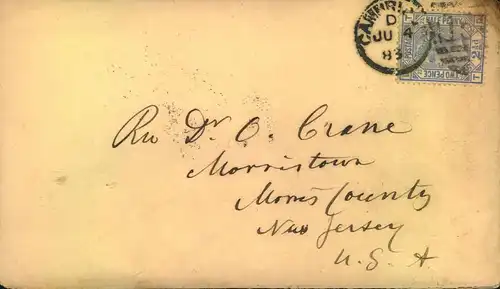 CAMBRI
D
JU 4
83
HALFPENNY
TWO PENCE
Rev Dr. O. Crane
Morristown
Morris County
New Jersey
U. S. A